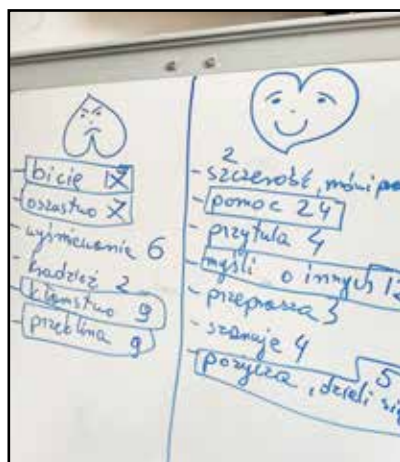 - bicie
- oszustwo
- wyśmiewanie 6
- kradzież 2
- kłamstwo 9
- przeklina 9
2
- szczerość, mówi
- pomoc 24
- przytula 4
- myśli o innych
- przeprasza 3
- szanuje 4
5
- pożycza, dzieli się